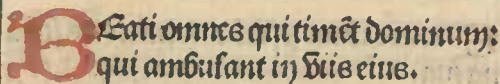 BEati omnes qui timēt dominum:
qui ambulant in viis eius.